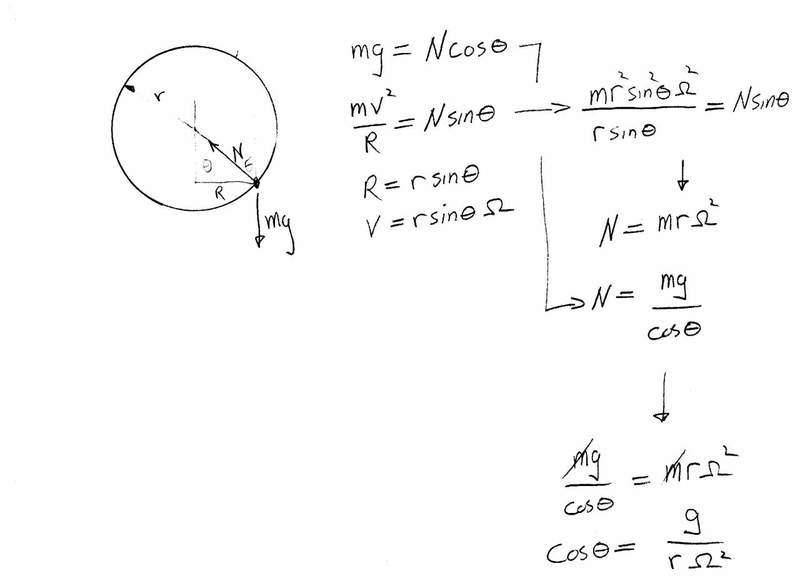 r
θ
N
R
mg
mg = Ncosθ
mv²/R = Nsinθ → mr²sin²θΩ²/rsinθ = Nsinθ
R = rsinθ
V = rsinθ Ω
N = mrΩ²
N = mg/cosθ
mg/cosθ = mrΩ²
cosθ = g/rΩ²